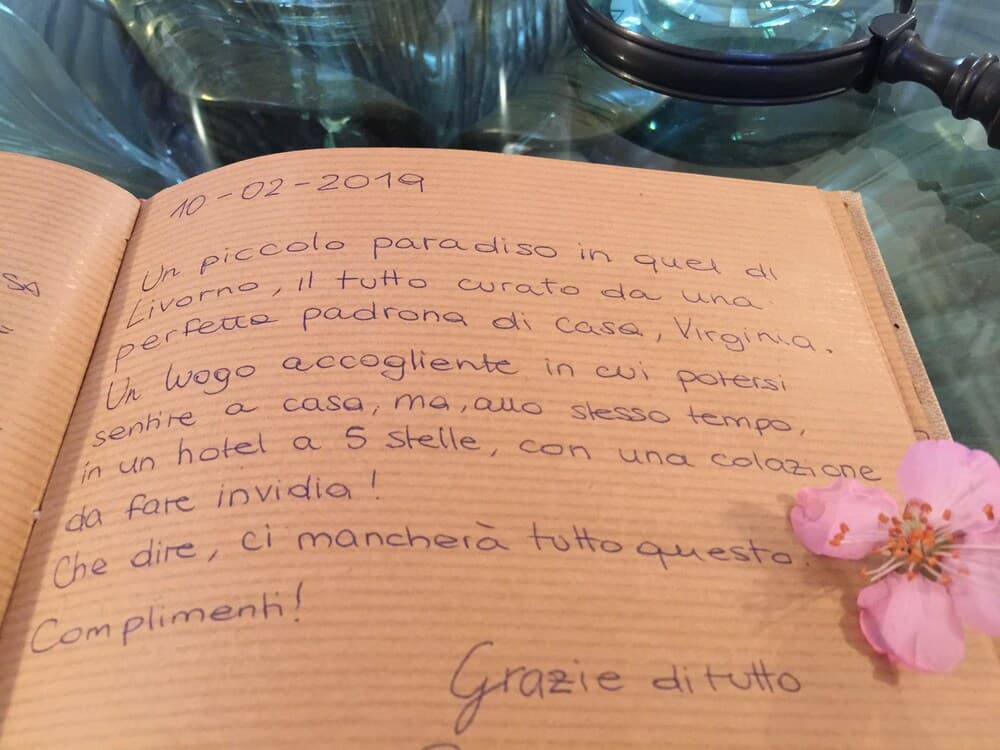 10-02-2019
Un piccolo paradiso in quel di
Livorno, il tutto curato da una
perfetta padrona di casa, Virginia.
Un luogo accogliente in cui potersi
sentire a casa, ma, allo stesso tempo,
in un hotel a 5 stelle, con una colazione
da fare invidia!
Che dire, ci mancherà tutto questo.
Complimenti!
Grazie di tutto